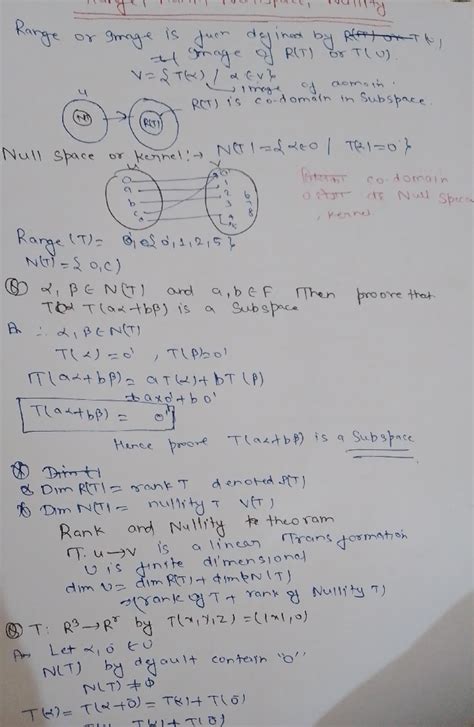 Range, Null space, Nullity
Range or Image is fuen defined by R(T) or T(v),
Image of R(T) or T(U).
V = { T(α) / α ∈ v }
image of domain.
R(T) is co-domain in Subspace.
U
N(T)
R(T)
Null Space or Kernel :→ N(T) = { α ∈ 0 / T(α) = 0' }
U
V
0
a
b
c
0'
1
2
3
co-domain
Null Space
, kernel
Range (T) = 0, 0 { 0', 1, 2, 5 }
N(T) = { 0, c )
Q α, β ∈ N(T) and a, b ∈ F Then proove that
T(aα+bβ) is a Subspace
An ∴ α, β ∈ N(T)
T(α) = 0' , T(β) = 0'
T(aα+bβ) = aT(α) + bT(β)
= ax0' + b0'
T(aα+bβ) = 0'
Hence proove T(aα+bβ) is a Subspace
Dim
Dim R(T) = rank T denoted ρ(T)
Dim N(T) = nullity T ν(T)
Rank and Nullity theoram
T: u → v is a linear Transformation
U is finite dimensional
dim U = dim R(T) + dim N(T)
= (rank of T + rank of Nullity T)
Q T: R³ → R² by T(x, y, z) = (1x1, 0)
An Let α, 0 ∈ U
N(T) by default contain "0"
N(T) ≠ φ
T(α) = T(α+0) = T(α) + T(0)
T(α) + T(0)